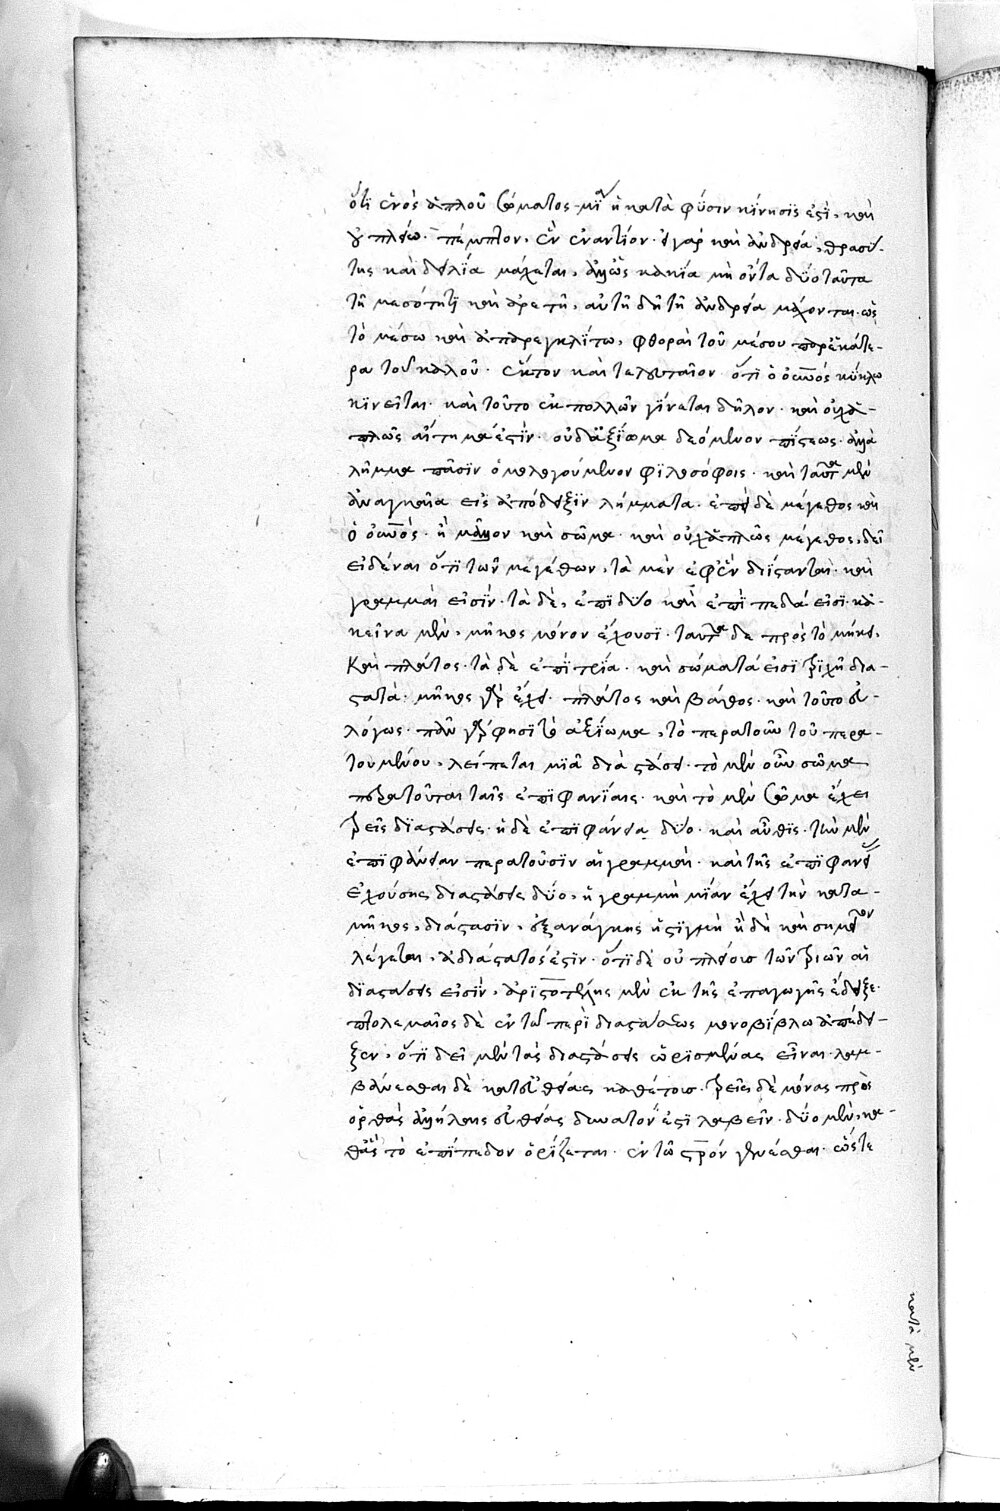 ὅτι ἑνὸς ἁπλοῦ σώματος μία ἡ κατὰ φύσιν κίνησίς ἐστι, καὶ
οὐ πλείω. πέμπτον, ἓν ἑνὶ ἀντίον. εἰ γὰρ καὶ ἀνδρεία, θρασύ-
της καὶ δειλία μάχεται, ἀλλ' ὡς κακία μὴ ὄντα δύο ταῦτα
τῇ μεσότητι καὶ ἀρετῇ, αὐτῇ δὴ τῇ ἀνδρεία μάχονται. ὡς
τὸ μέσω καὶ ἀπαρεγκλίτω, φθοραὶ τοῦ μέσου παρ' ἑκάτε-
ρα τοῦ καλοῦ. ἕκτον καὶ τελευταῖον ὅτι ὁ οὐνὸς κύκλω
κινεῖται. καὶ τοῦτο ἐκ πολλῶν γίνεται δῆλον. καὶ οὐχ ἁ-
πλῶς αἴτημά ἐστιν. οὐδ' ἀξίωμα δεόμενον πίστεως. ἀλλὰ
λῆμμα πᾶσιν ὁμολογούμενον φιλοσόφοις. καὶ ταῦτα μὲν
ἀναγκαῖα εἰς ἀπόδειξιν λήμματα. ἐπεὶ δὲ μέγεθος καὶ
ὁ οὐνός. ἢ μᾶλλον καὶ σῶμα. καὶ οὐχ ἁπλῶς μέγεθος, δεῖ
εἰδέναι ὅτι τῶν μεγέθων, τὰ μὲν ἐφ' ἓν διίσταται. καὶ
γραμμαὶ εἰσίν. τὰ δὲ, ἐπὶ δύο καὶ ἐπίπεδά εἰσι. κἀ-
κεῖνα μὲν, μῆκος μόνον ἔχουσι. ταῦτα δὲ πρὸς τὸ μῆκος,
καὶ πλάτος. τὰ δὲ ἐπὶ τρία. καὶ σώματά εἰσι τριχῆ δια-
στατά. μῆκος γὰρ ἔχει. πλάτος καὶ βάθος. καὶ τοῦτο εὐ-
λόγως. πᾶν γὰρ φησὶ τὸ ἀξίωμα, τὸ περατοῦν τοῦ περα-
τουμένου, λείπεται μιᾶ διαστάσει. τὸ μὲν οὖν σῶμα
περατοῦται ταῖς ἐπιφανίαις. καὶ τὸ μὲν σῶμα ἔχει
τρεῖς διαστάσεις. ἡ δὲ ἐπιφάνεια δύο. καὶ αὖθις. τὴν μὲν
ἐπιφάνειαν περατοῦσιν αἱ γραμμαί. καὶ τῆς ἐπιφανείας
ἐχούσης διαστάσεις δύο, ἡ γραμμὴ μίαν ἔχει τὴν κατα-
μῆκος, διάστασιν. ἐξανάγκης ἡ στιγμὴ ἢ δὴ καὶ σημεῖον
λέγεται, ἀδιάστατός ἐστιν. ὅτι δὲ οὐ πλείους τῶν τριῶν αἱ
διαστάσεις εἰσὶν, ἀριστοτέλης μὲν ἐκ τῆς ἐπαγωγῆς ἔδειξε.
πτολεμαῖος δὲ ἐν τῶ περὶ διαστάσεως μονοβίβλω ἀπέδει-
ξεν. ὅτι δεῖ μὲν τὰς διαστάσεις ὡρισμένας εἶναι. λαμ-
βάνεσθαι δὲ κατ' εὐθείας καθέτους. τρεῖς δὲ μόνας πρὸς
ὀρθὰς ἀλλήλαις εὐθείας δυνατόν ἐστι λαβεῖν. δύο μὲν, κα-
θ' ἃς τὸ ἐπίπεδον ὁρίζεται. ἐν τῶ στερεόν γενέσθαι. ὥστε
κατὰ μὲν